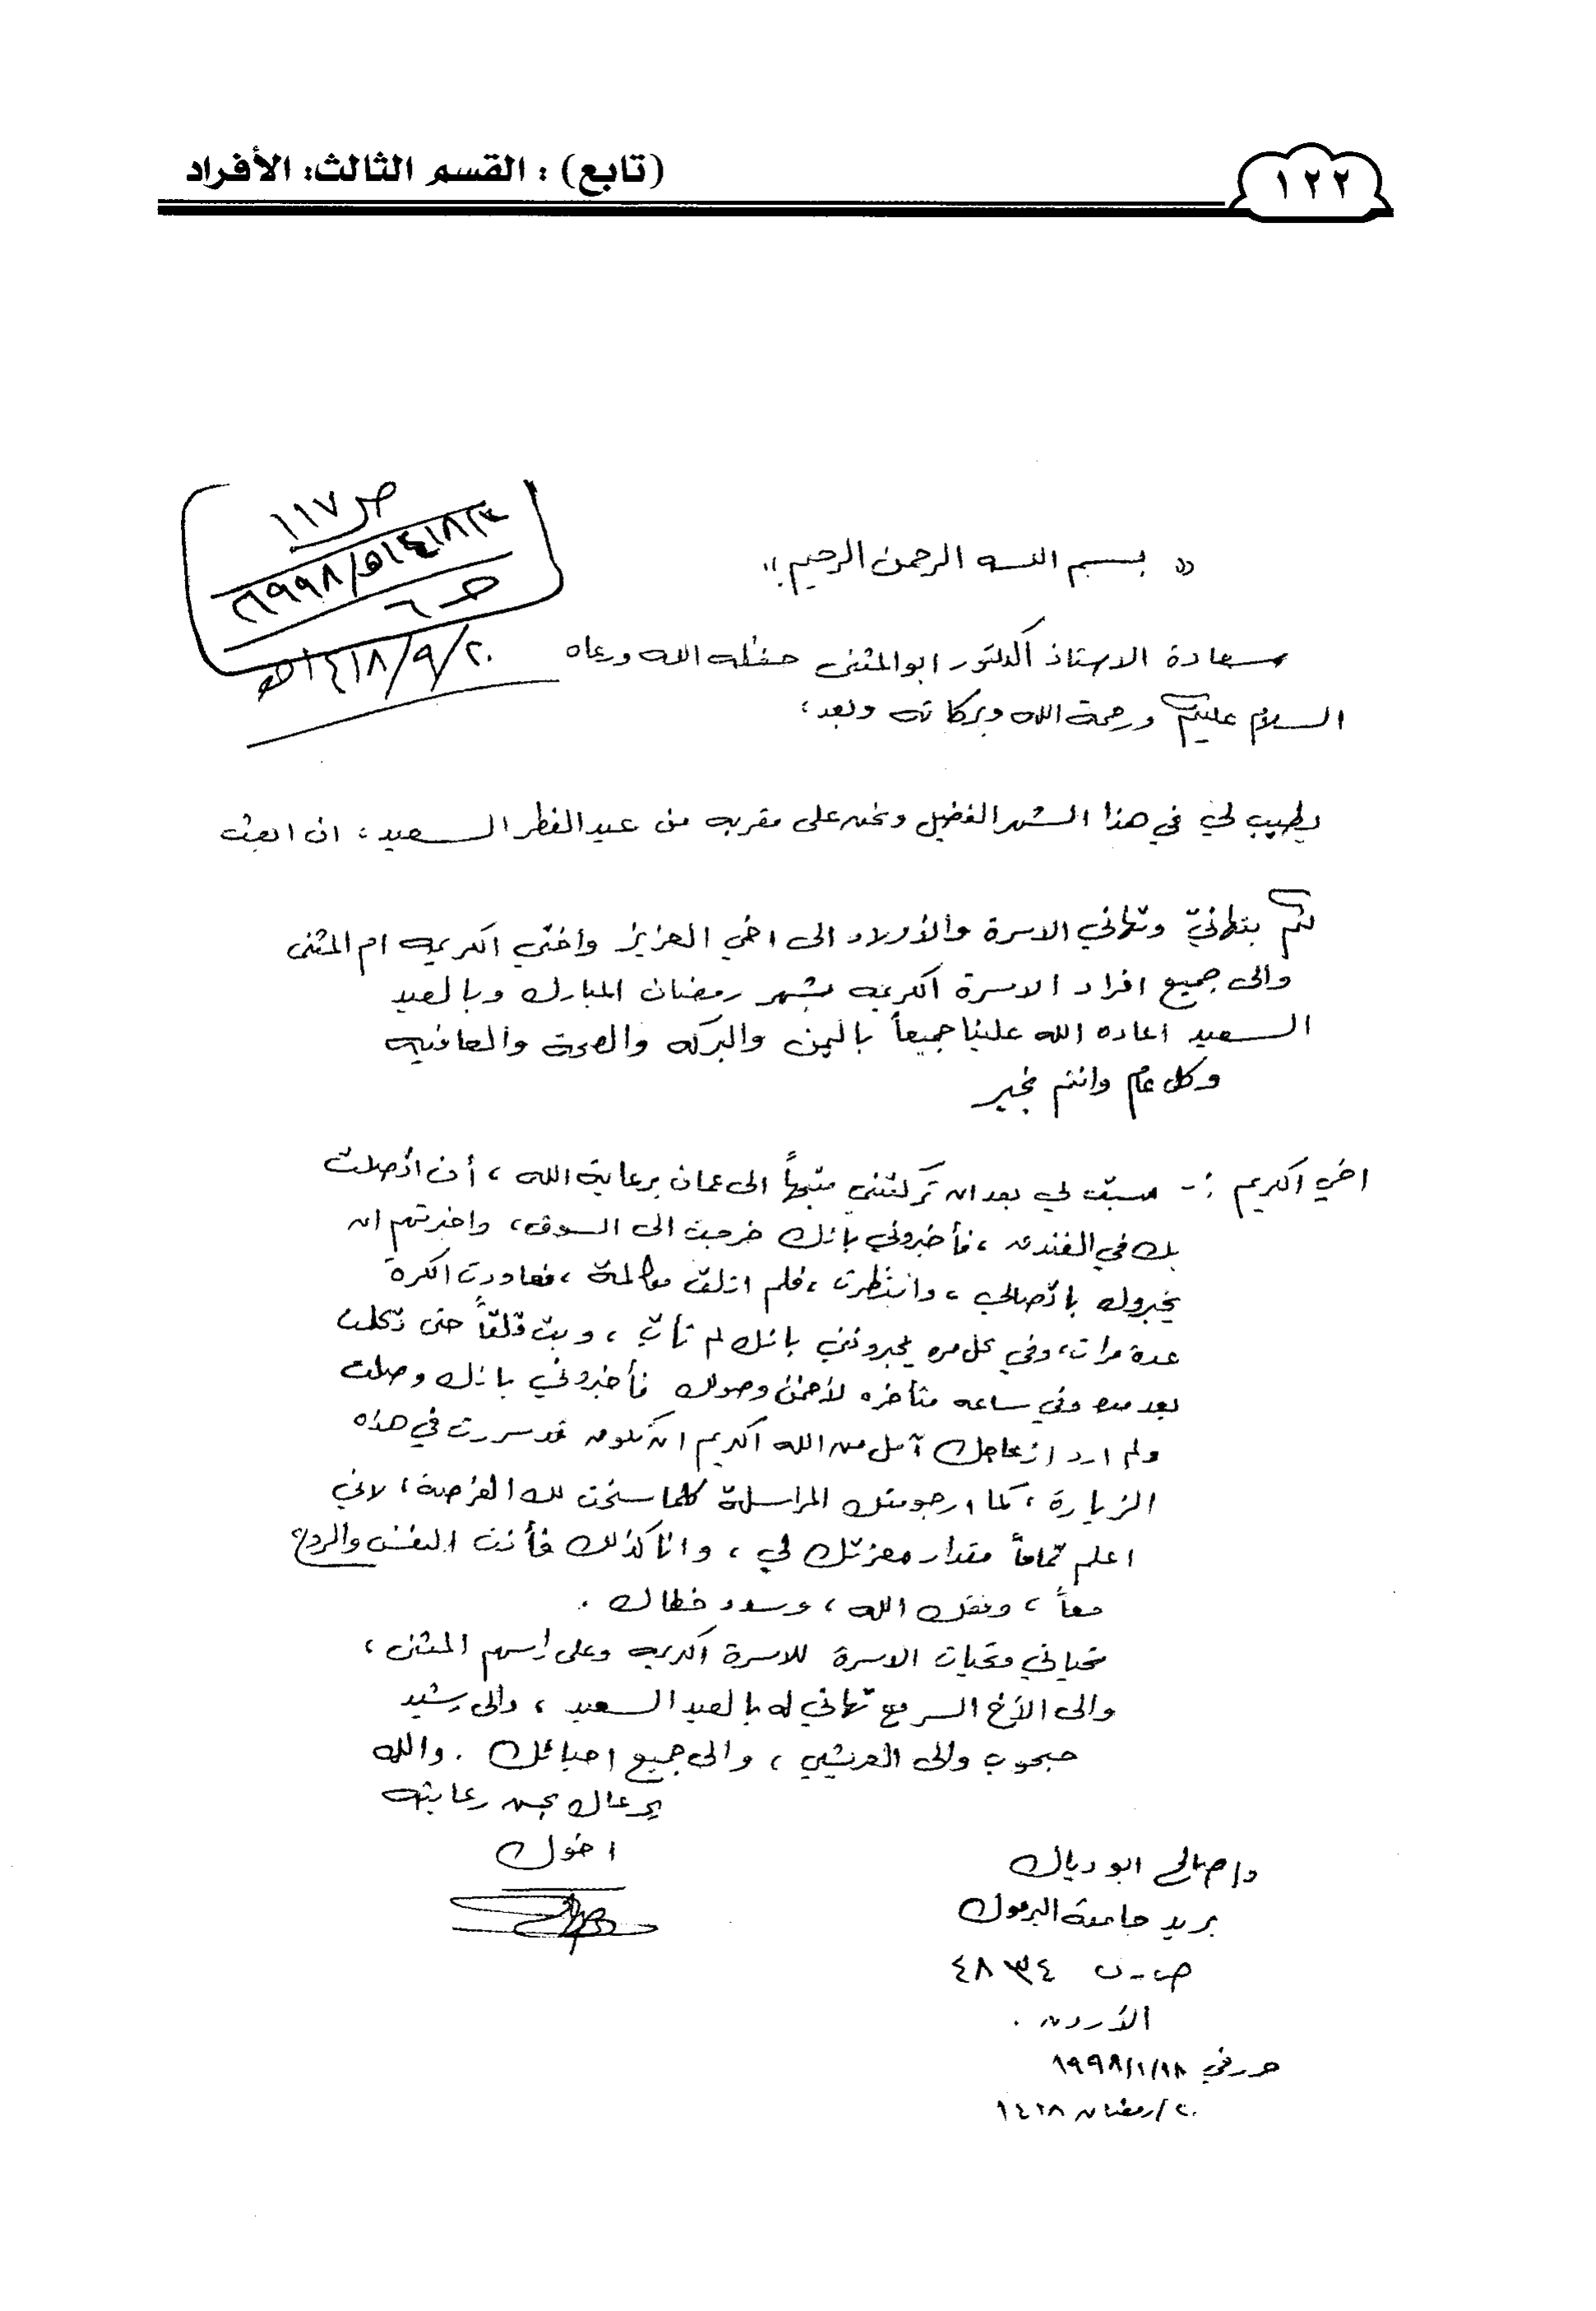 ١٢٢
(تابع) : القسم الثالث: الأفراد
ص ١١٧
٢٠/٩/١٤١٨هـ
« بسم الله الرحمن الرحيم »
سعادة الاستاذ الدكتور ابو المثنى حفظه الله ورعاه
السلام عليكم ورحمة الله وبركاته وبعد؛
يطيب لي في هذا الشهر الفضيل ونحن على مقربه من عيد الفطر السعيد، ان ابعث
لكم بتهانيّ وتهاني الاسرة والأولاد الى اخي العزيز واختي الكريمه ام المثنى
والى جميع افراد الاسرة الكريمه بشهر رمضان المبارك وبالعيد
السعيد اعاده الله علينا جميعاً باليمن والبركه والصحة والعافيه
وكل عام وانتم بخير
اخي الكريم :- سبق لي بعد ان تركتني متجهاً الى عمان برعاية الله ، أن اتصلت
بك في الفندق ، فأخبروني بانك خرجت الى السوق، واخبرتهم ان
يخبروك باتصالي ، وانتظرت ، فلم اتلق مكالمة ، فعاودت الكرة
عدة مرات، وفي كل مره يخبرونني بانك لم تأت ، وبت قلقاً حتى تكلمت
بعد وفي ساعه متأخره لأضمن وصولك فأخبروني بانك وصلت
ولم ارد ازعاجك آمل من الله الكريم ان تكون قد سررت في هذه
الزيارة ، كما ارجو منك المراسلة كلما سنحت لك الفرصة ، لاني
اعلم تماماً مقدار معزتك لي ، وانا كذلك فأنت النفس والروح
معاً ، وفقك الله ، وسدد خطاك .
تحياتي وتحيات الاسرة للاسرة الكريمه وعلى رأسهم المثنى ،
والى الأخ السر مع تهاني له بالعيد السعيد ، والى رشيد
حبوب والى العريشي ، والى جميع احبائك . والله
يرعاك بحسن رعايته
اخوك
د/ صالح ابو دياك
بريد جامعة اليرموك
ص.ب ٤٨٣٤
الأردن .
حرر في ١٨/١/١٩٩٨
٢٠/رمضان ١٤١٨